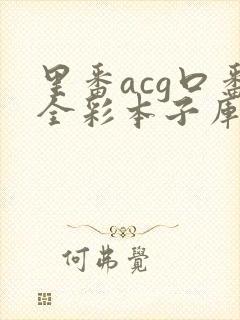 里番acg口番
全彩本子库
何弗覺